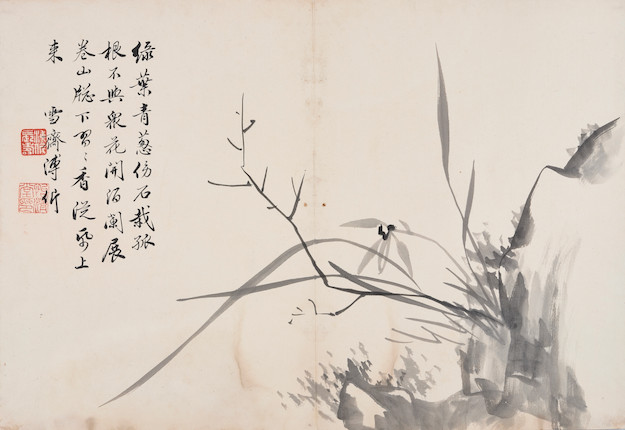 綠葉青葱傍石栽孤
根不與衆花開酒闌展
卷山牕下習〻香從帋上
来 雪齋溥伒